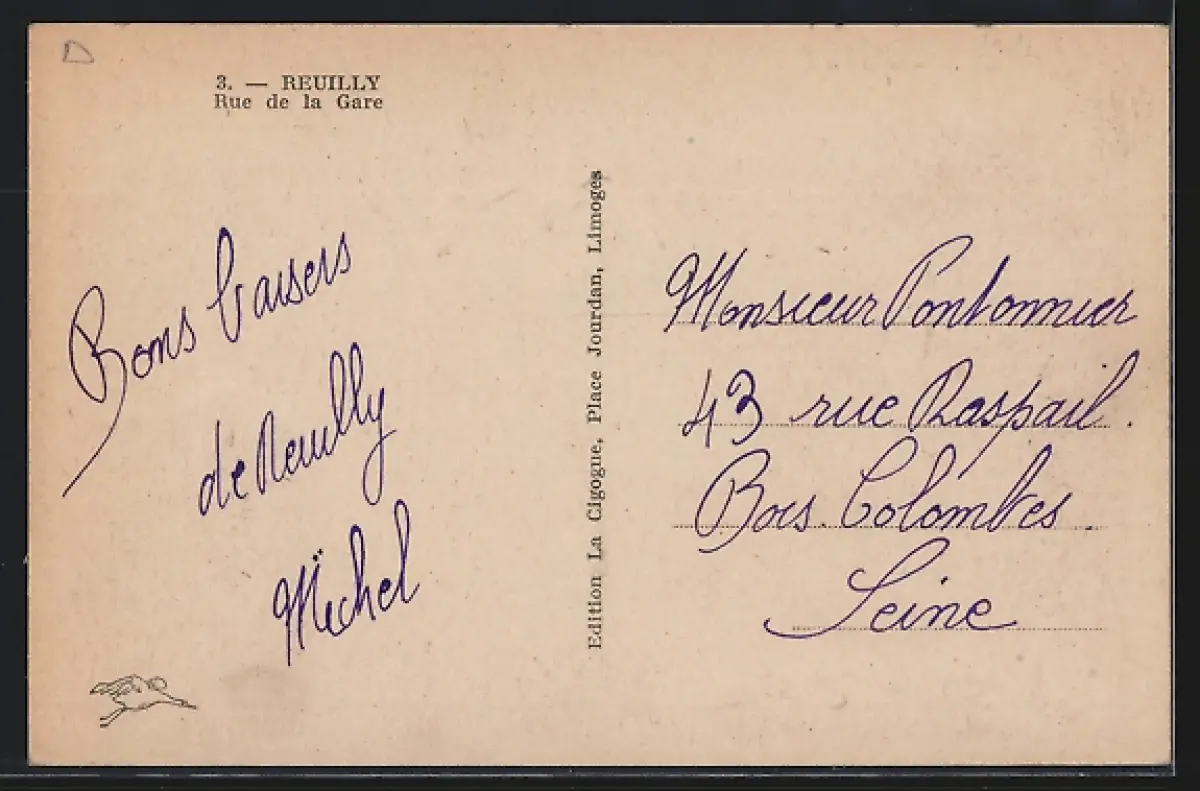 D
3. — REUILLY
Rue de la Gare
Bons baisers
de Reuilly
Michel
Edition La Cigogne, Place Jourdan, Limoges
Monsieur Pontonnier
43 rue Raspail.
Bois. Colombes.
Seine